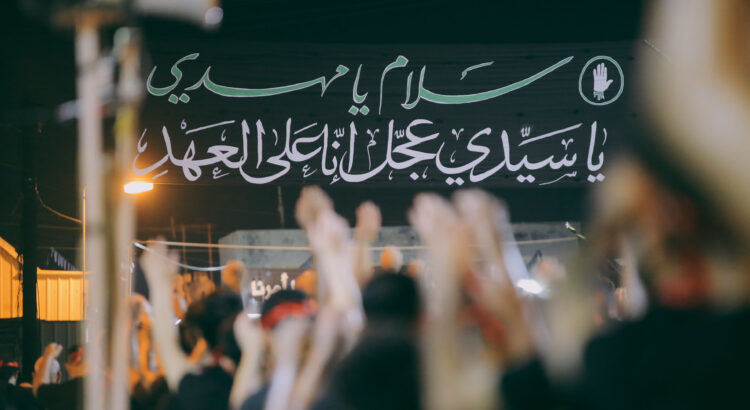 سلام يا مهدي
يا سيّدي عجّل إنّا على العهدِ